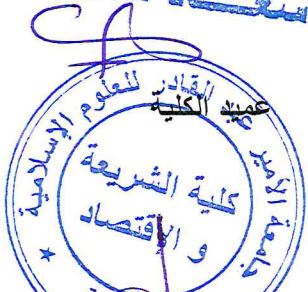 عميد الكلية
جامعة الأمير عبد القادر للعلوم الإسلامية
كلية الشريعة
و الإقتصاد